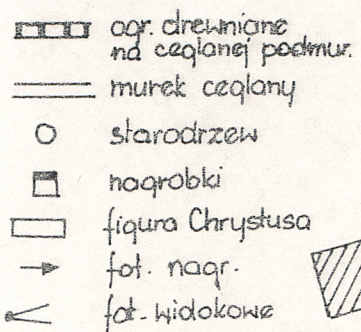 ogr. drewniane
na ceglanej podmur.
murek ceglany
starodrzew
nagrobki
figura Chrystusa
fot. nagr.
fot. widokowe